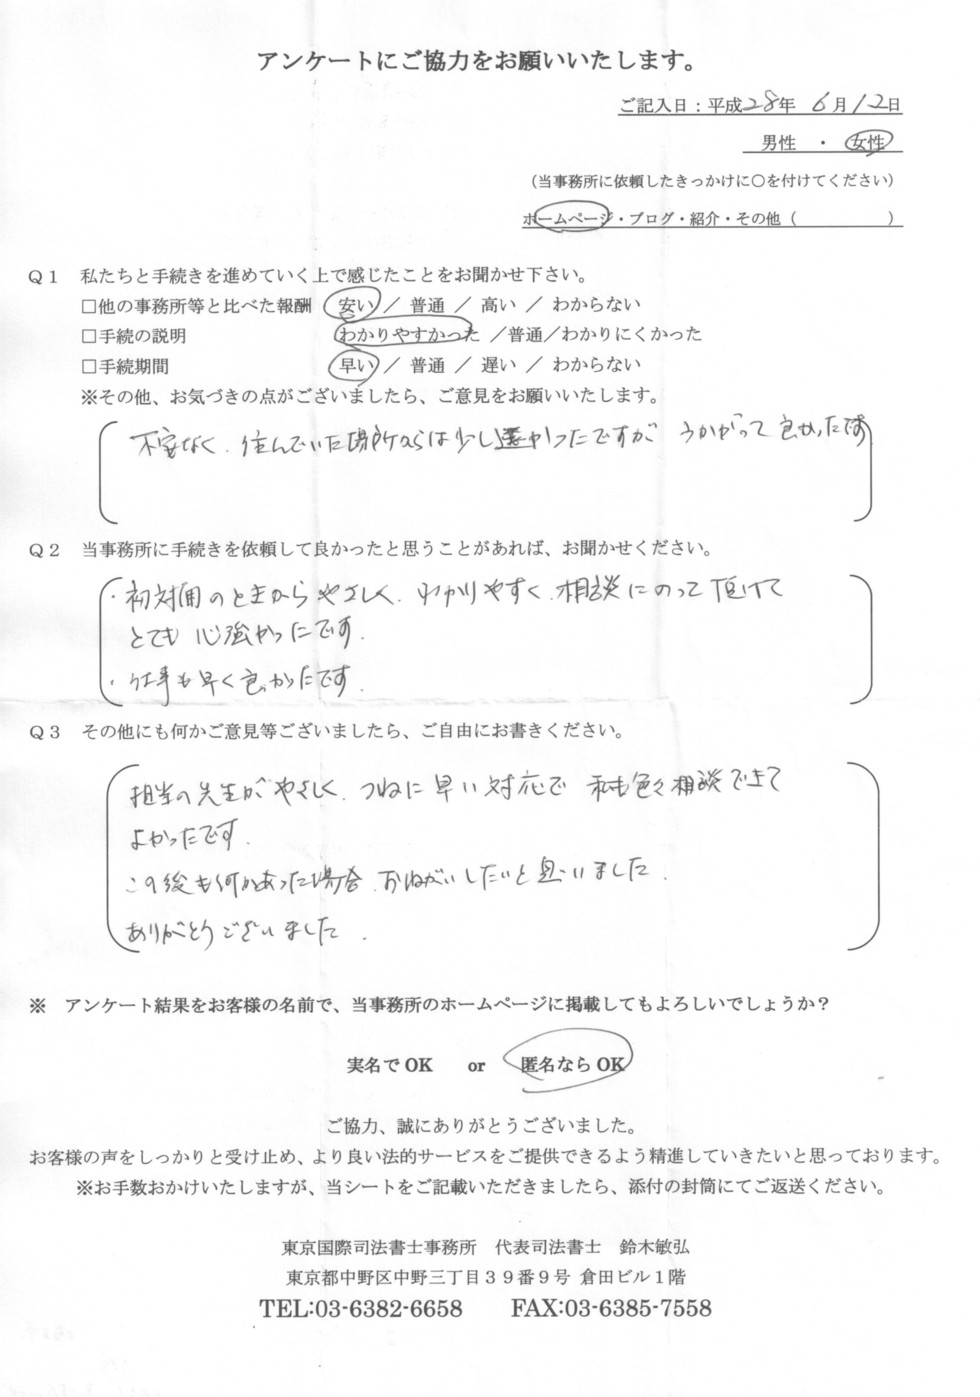 アンケートにご協力をお願いいたします。
ご記入日：平成28年 6月12日
男性 ・ 女性
（当事務所に依頼したきっかけに○を付けてください）
ホームページ・ブログ・紹介・その他（　　　　　）
Q1 私たちと手続きを進めていく上で感じたことをお聞かせ下さい。
□他の事務所等と比べた報酬 安い ／ 普通 ／ 高い ／ わからない
□手続の説明 わかりやすかった ／普通／わかりにくかった
□手続期間 早い ／ 普通 ／ 遅い ／ わからない
※その他、お気づきの点がございましたら、ご意見をお願いいたします。
不安なく、住んでいた場所からは少し遠かったですが うかがって良かったです
Q2 当事務所に手続きを依頼して良かったと思うことがあれば、お聞かせください。
・初対面のときからやさしく、わかりやすく、相談にのって頂けて
とても心強かったです.
・仕事も早く良かったです.
Q3 その他にも何かご意見等ございましたら、ご自由にお書きください。
担当の先生がやさしく、つねに早い対応で 私も色々相談できて
よかったです.
この後も何かあった場合、おねがいしたいと思いました.
ありがとうございました.
※ アンケート結果をお客様の名前で、当事務所のホームページに掲載してもよろしいでしょうか？
実名でOK or 匿名ならOK
ご協力、誠にありがとうございました。
お客様の声をしっかりと受け止め、より良い法的サービスをご提供できるよう精進していきたいと思っております。
※お手数おかけいたしますが、当シートをご記載いただきましたら、添付の封筒にてご返送ください。
東京国際司法書士事務所 代表司法書士 鈴木敏弘
東京都中野区中野三丁目39番9号 倉田ビル1階
TEL:03-6382-6658 FAX:03-6385-7558